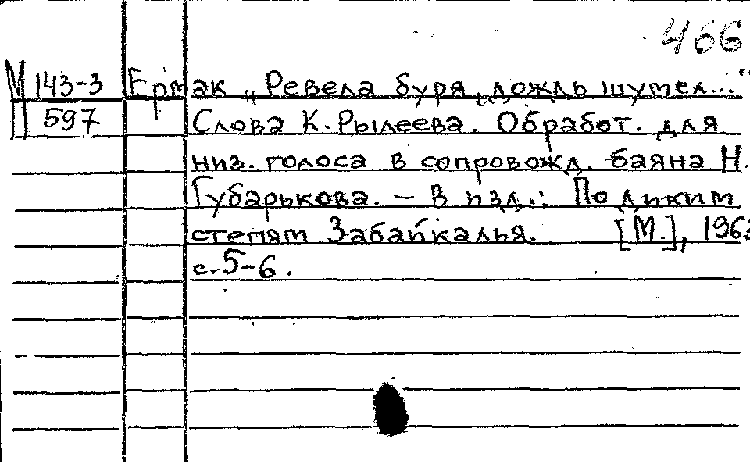 466
М 143-3 Ермак „Ревела буря, дождь шумел..."
П 597 Слова К. Рылеева. Обработ. для
низ. голоса в сопровожд. баяна Н.
Губарькова. – В изд.: По диким
степям Забайкалья. [М.], 1963
с. 5-6.